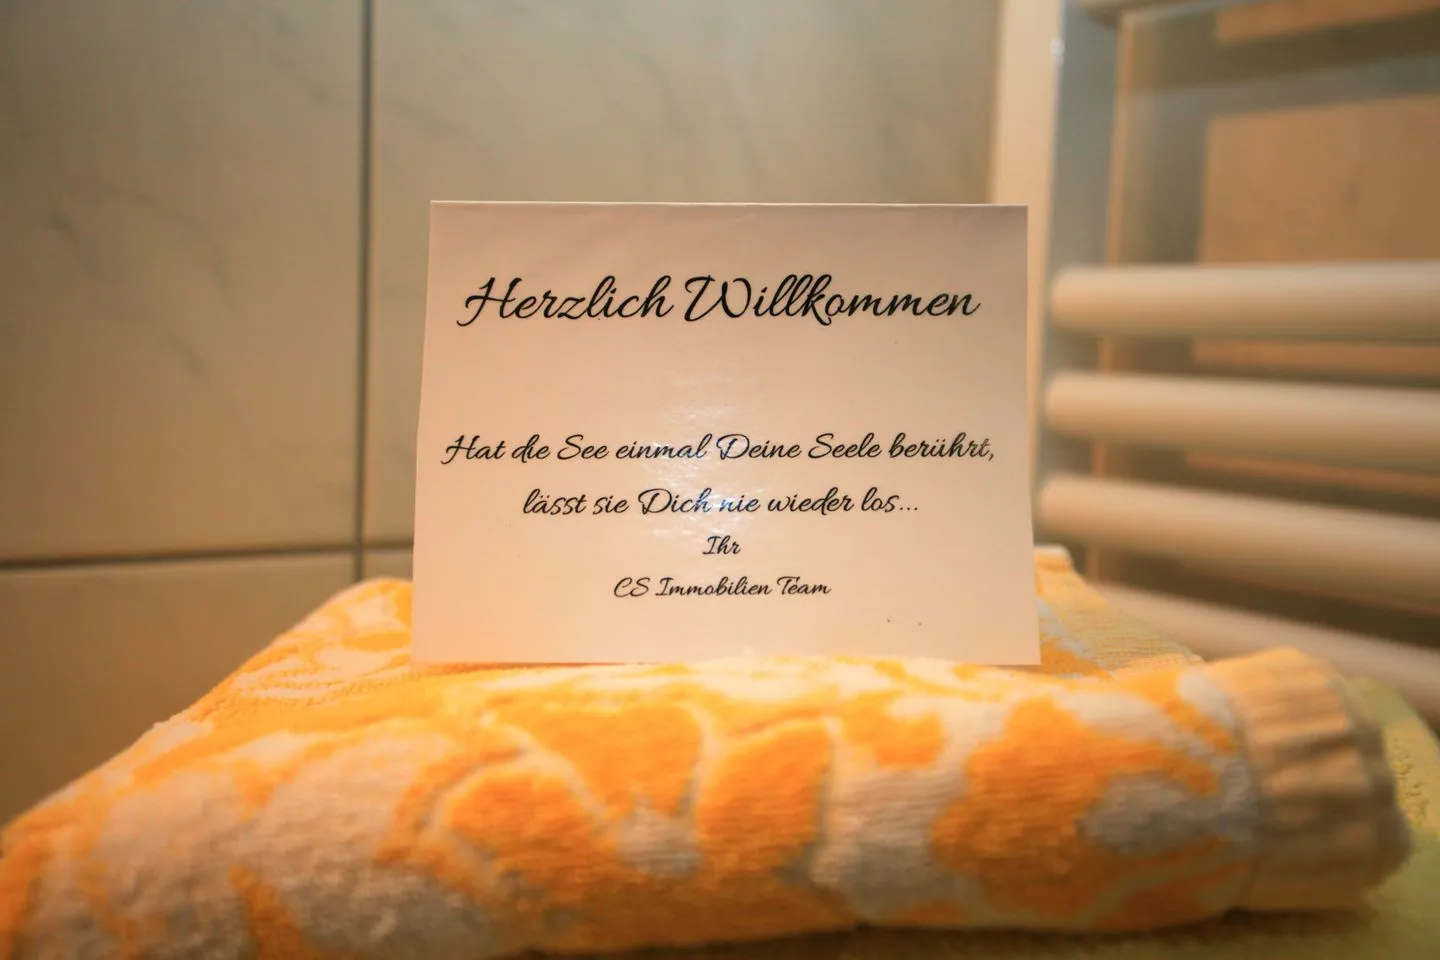 Herzlich Willkommen
Hat die See einmal Deine Seele berührt,
lässt sie Dich nie wieder los...
Ihr
CS Immobilien Team